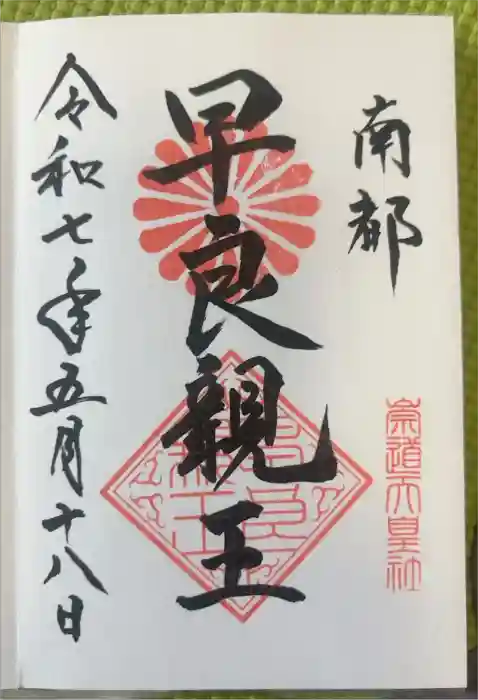 南都
崇道天皇社
早良親王
早良親王
令和七年五月十八日